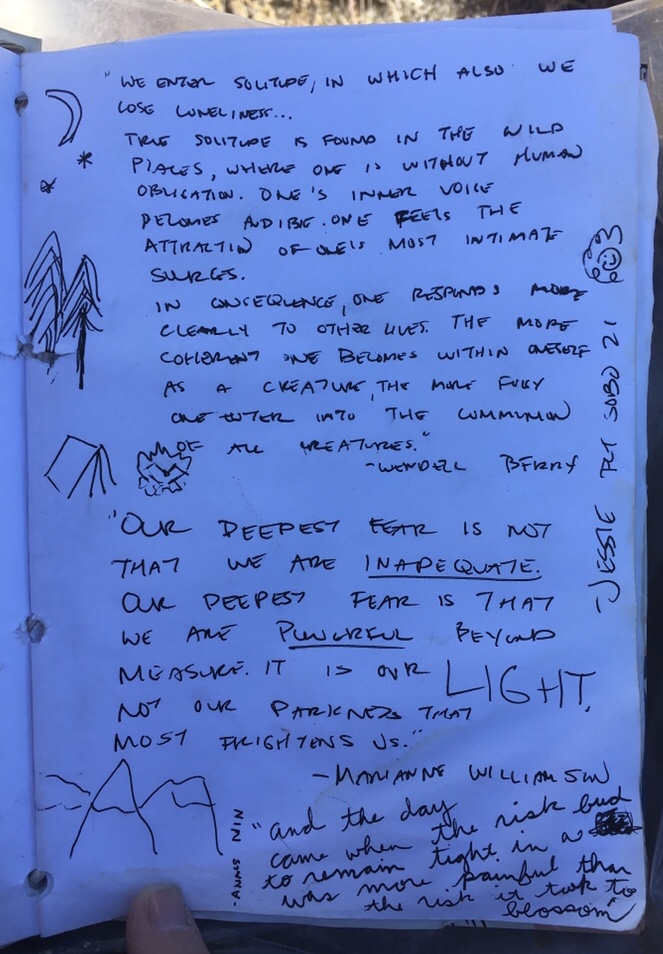 "WE ENTER SOLITUDE, IN WHICH ALSO WE
LOSE LONELINESS...
TRUE SOLITUDE IS FOUND IN THE WILD
PLACES, WHERE ONE IS WITHOUT HUMAN
OBLIGATION. ONE'S INNER VOICE
BECOMES AUDIBLE. ONE FEELS THE
ATTRACTIN OF ONE'S MOST INTIMATE
SOURCES.
IN CONSEQUENCE, ONE RESPONDS MORE
CLEARLY TO OTHER LIVES. THE MORE
COHERENT ONE BECOMES WITHIN ONESELF
AS A CREATURE, THE MORE FULLY
ONE ENTER INTO THE COMMUNION
OF ALL CREATURES."
-WENDELL BERRY
"OUR DEEPEST FEAR IS NOT
THAT WE ARE INADEQUATE.
OUR DEEPEST FEAR IS THAT
WE ARE POWERFUL BEYOND
MEASURE. IT IS OUR LIGHT,
NOT OUR DARKNESS THAT
MOST FRIGHTENS US."
-MARIANNE WILLIAMSON
"and the day
came when the risk bud
to remain tight in a
was more painful than
the risk it took to
blossom"
-ANAIS NIN
-JESSIE PCT SOBO 21